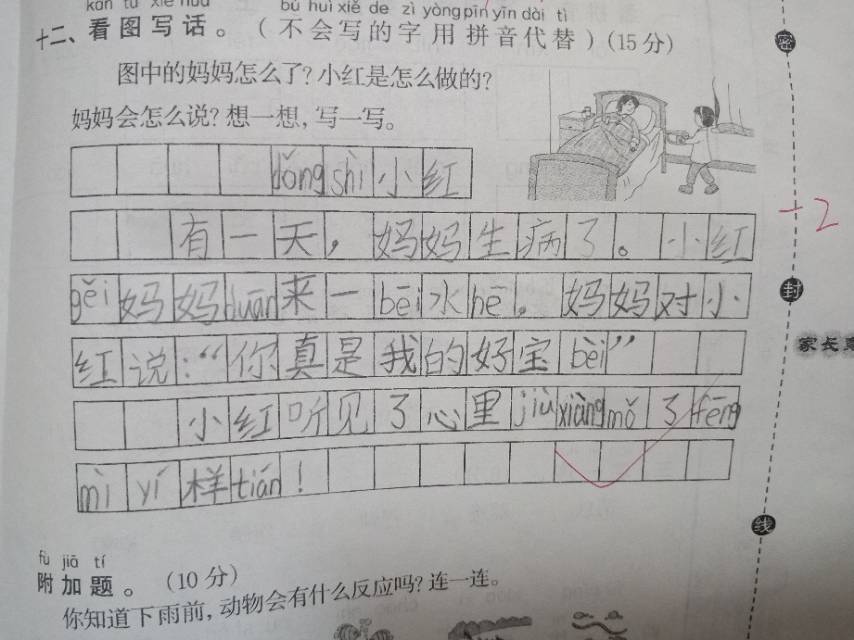 kàn tú xiě huà bú huì xiě de zì yòng pīn yīn dài tì
十二、看图写话。(不会写的字用拼音代替)(15分)
图中的妈妈怎么了?小红是怎么做的?
妈妈会怎么说?想一想,写一写。
dǒng shì 小红
有一天,妈妈生病了。小红
gěi妈妈duān来一bēi水hē。妈妈对小
红说:“你真是我的好宝bèi”
小红听见了心里jiù xiàng mǒ了fēng
mì yí 样tián!
-2
密
封
线
家长
fù jiā tí
附加题。(10分)
你知道下雨前,动物会有什么反应吗?连一连。